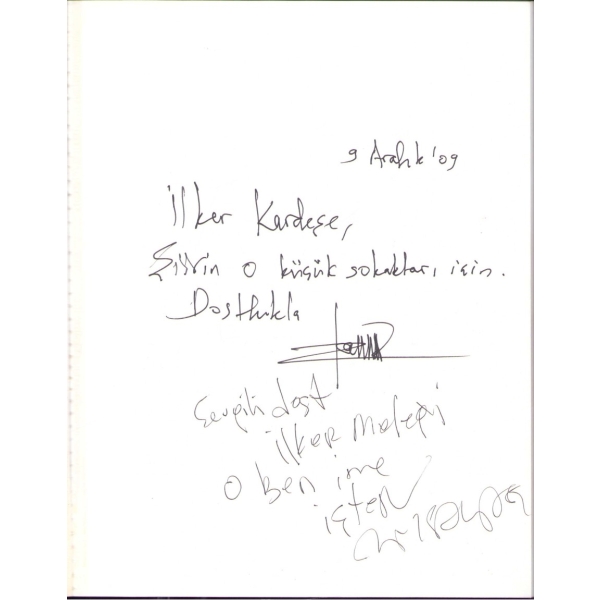 9 Aralık '09
İlker Kardeşe,
Şiirin o küçük sokakları için.
Dostlukla
Sevgili dost
ilker
o ben
içten